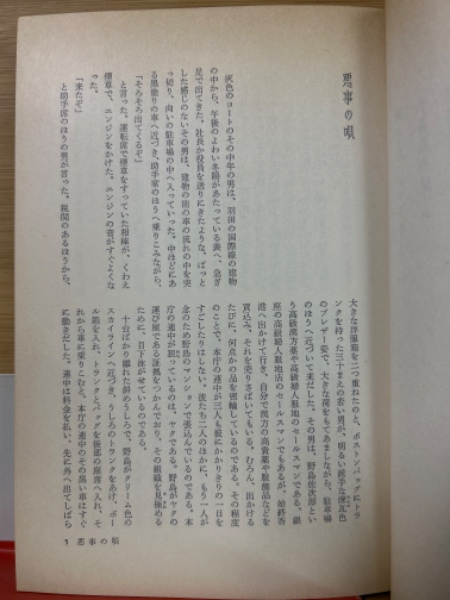 悪事の唄
灰色のコートのその中年の男は、羽田の国際線の建物
の中から、午後のよわい冬陽があたっている表へ、急ぎ
足で出てきた。社長か役員を送りにきたような、ぱっと
した感じのないその男は、建物の前の車の流れの中を突
っ切り、向いの駐車場の中へ入っていった。中ほどにあ
る黒塗りの車へ近づき、助手席のほうへ乗りこみながら、
「そろそろ出てくるぞ」
と言った。運転席で煙草をすっていた相棒が、くわえ
煙草で、エンジンをかけた。エンジンの音がすぐよくな
った。
「来たぞ」
と助手席のほうの男が言った。税関のあるほうから、
大きな洋服箱を二つ重ねたのと、ボストンバッグにトラ
ンクを持った三十まえの若い男が、明るい派手な煉瓦色
のブレザー姿で、大きな荷をもてあましながら、駐車場
のほうへ近づいて来だした。その男は、野島佐次郎とい
う高級漢方薬や高級婦人服地のセールスマンである。銀
座の高級婦人服地店のセールスマンでもあるが、始終香
港へ出かけて行き、自分で漢方の高貴薬や服飾品などを
買込み、それを売りさばいてもいる。むろん、出かける
たびに、何点かの品を密輸しているのである。その程度
のことで、本庁の連中が三人も彼にかかりきりの一日を
すごしたりはしない。彼たち二人のほかに、もう一人が
念のため野島のマンションで張込んでいるのである。本
庁の連中が狙っているのは、ヤクである。野島がヤクの
運び屋である証拠をつかんでおり、その組織を見極める
ために、目下泳がせているのである。
十台ばかり離れた斜めうしろで、野島がクリーム色の
スカイラインへ近づき、うしろのトランクをあけ、ボー
ル箱を入れ、トランクとバッグを後部の座席へ入れ、そ
れから車に乗りこむと、本庁の連中のその黒い車はすぐ
に動きだした。連中は料金を払い、先に外へ出てしばら
5 悪事の唄